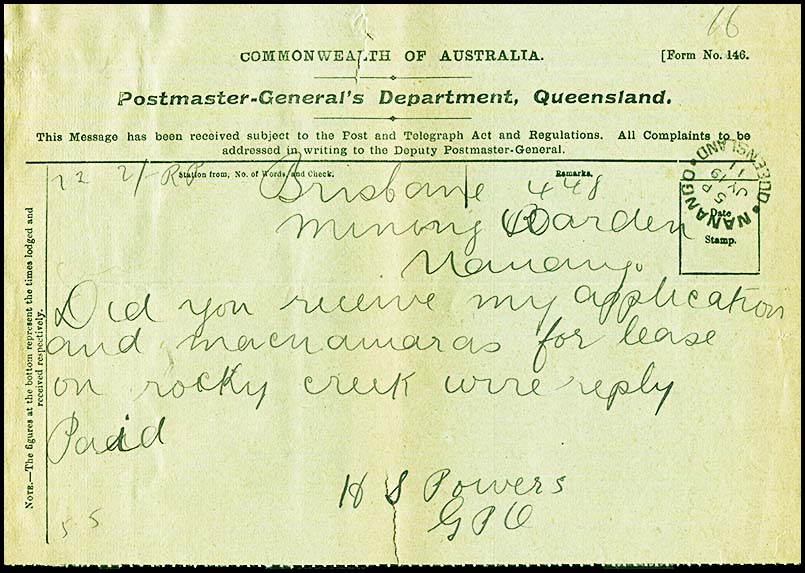 16
COMMONWEALTH OF AUSTRALIA.
[Form No. 146.
Postmaster-General's Department, Queensland.
This Message has been received subject to the Post and Telegraph Act and Regulations. All Complaints to be
addressed in writing to the Deputy Postmaster-General.
Station from, No. of Words, and Check.
Remarks.
22 2/- RP Brisbane 448
Mining Warden
Nanango
NANANGO QUEENSLAND
5 P
JY 19
11
Date
Stamp.
Did you receive my application
and macnamaras for lease
on rocky creek wire reply
Paid
H S Powers
GPO
55
NOTE.—The figures at the bottom represent the times lodged and
received respectively.